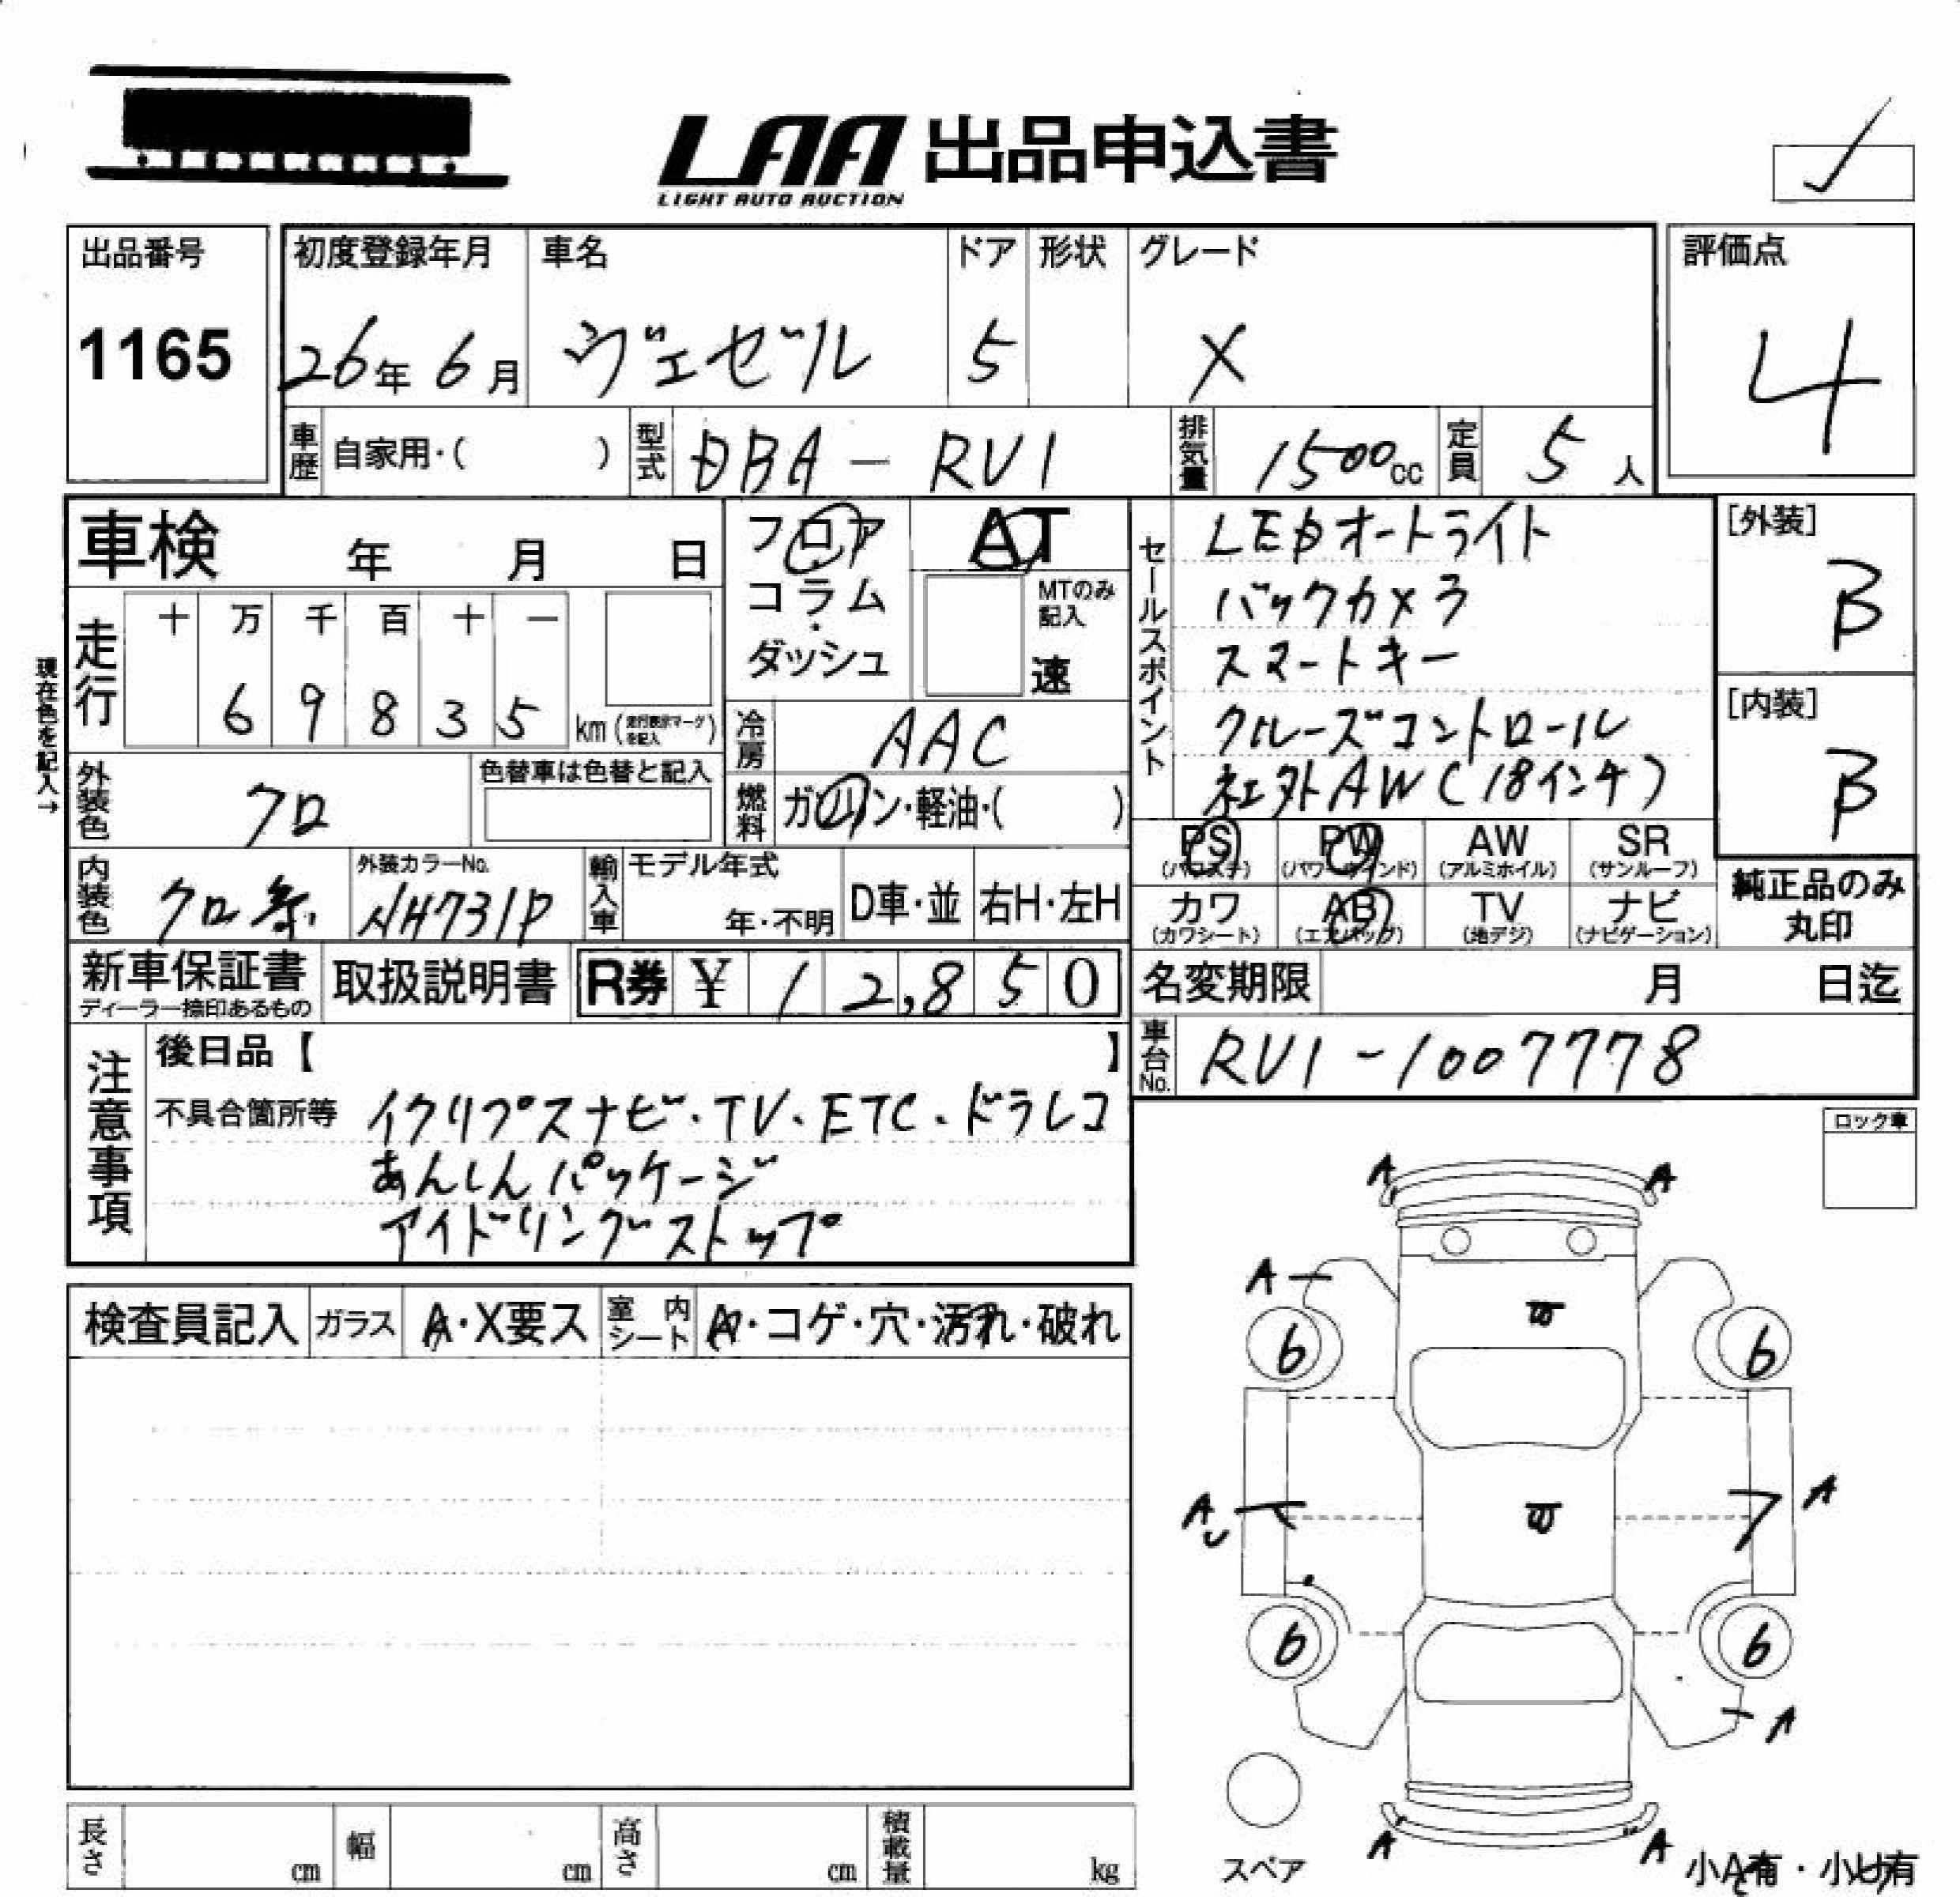 LAA 出品申込書
LIGHT AUTO AUCTION
出品番号 初度登録年月 車名 ドア 形状 グレード 評価点
1165 26年 6月 ヴェゼル 5 X 4
車歴 自家用・( ) 型式 DBA-RV1 排気量 1500cc 定員 5人
車検 年 月 日
フロア AT
コラム・
ダッシュ
MTのみ記入
速
セールスポイント
LEDオートライト
バックカメラ
スマートキー
クルーズコントロール
社外AW(18インチ)
[外装]
B
[内装]
B
現在色を記入→
走行 十 万 千 百 十 一
6 9 8 3 5 km(走行表示マークを記入)
冷房 AAC
外装色 クロ 色替車は色替と記入
燃料 ガソリン・軽油・( )
PS AW SR
(パワステ) PW (パワーウインド) (アルミホイル) (サンルーフ)
カワ AB TV ナビ
(カワシート) (エアバッグ) (地デジ) (ナビゲーション)
純正品のみ
丸印
内装色 クロ系 外装カラーNo. NH731P
輸入車 モデル年式 年・不明 D車・並 右H・左H
新車保証書 取扱説明書 R券 ¥ 12,850
ディーラー捺印あるもの
名変期限 月 日迄
車台No. RV1-1007778
注意事項
後日品【 】
不具合箇所等 イクリプスナビ・TV・ETC・ドラレコ
あんしんパッケージ
アイドリングストップ
ロック車
A A
A
6 6
A A
6 6
A
A A
検査員記入 ガラス A・X要ス 室内シート A・コゲ・穴・汚れ・破れ
スペア
小A有・小U有
長さ cm 幅 cm 高さ cm 積載量 kg